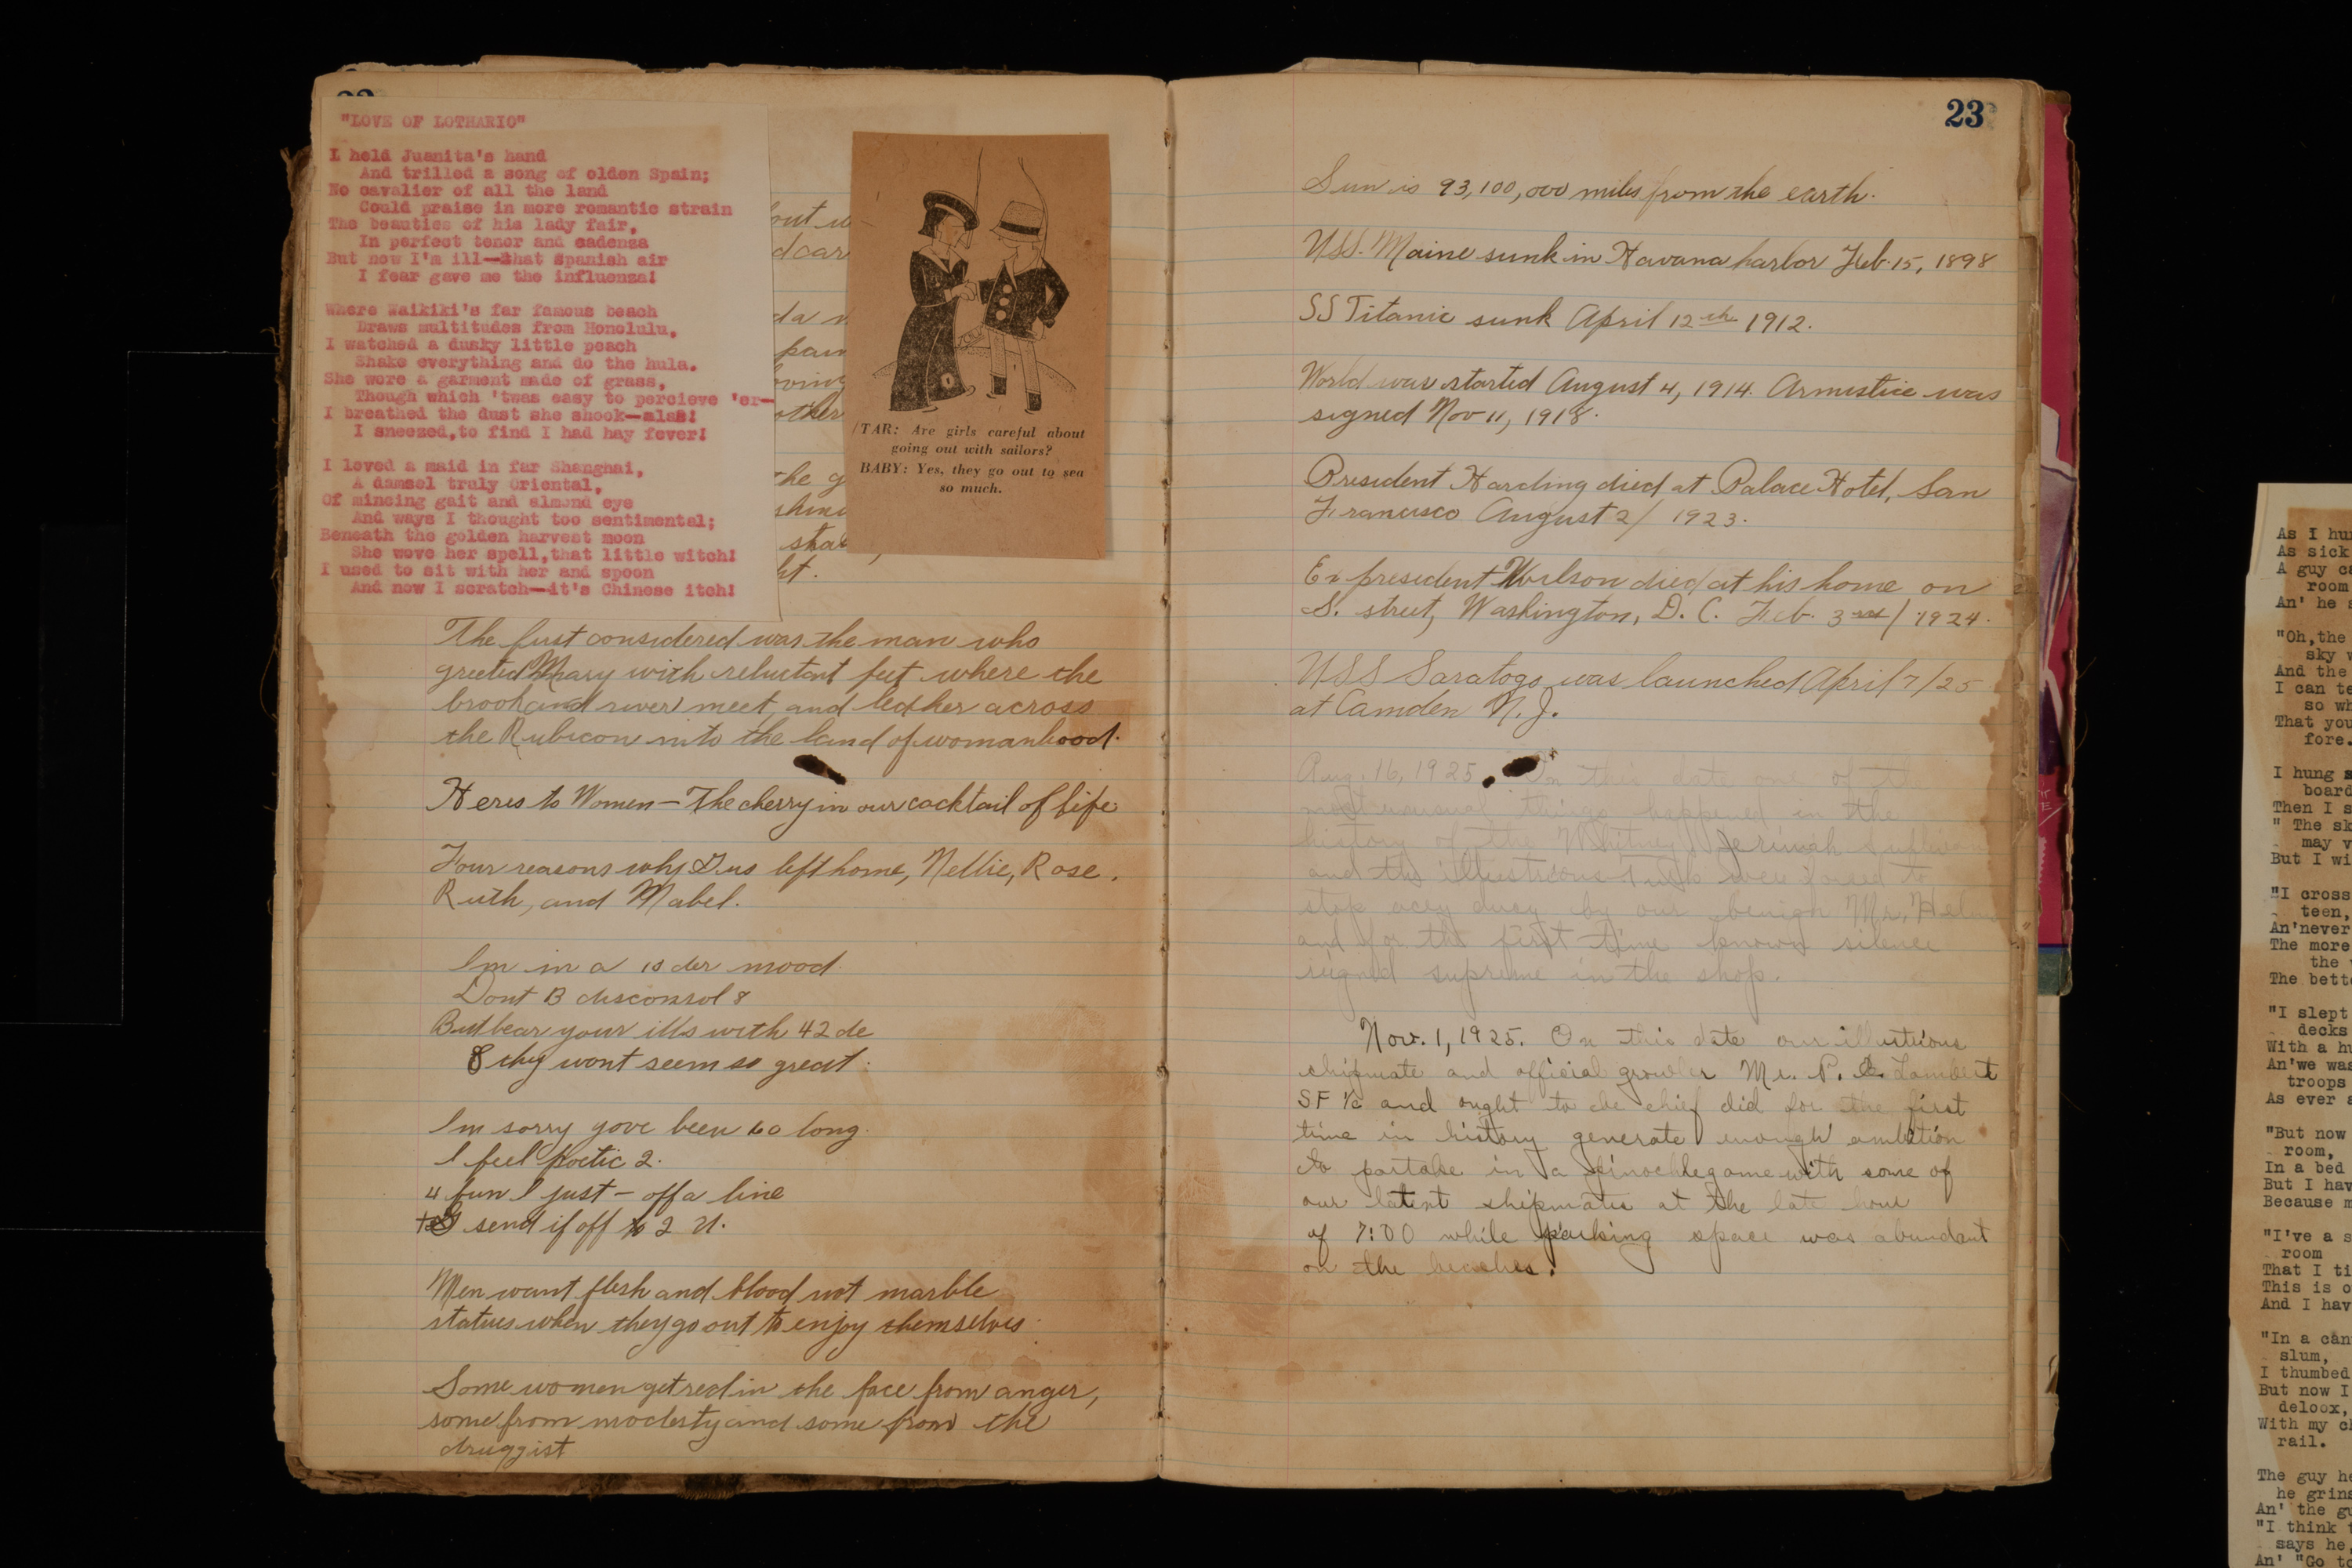 "LOVE OF LOTHARIO"
I held Juanita's hand
And trilled a song of olden Spain;
No cavalier of all the land
Could praise in more romantic strain
The beauties of his lady fair,
In perfect tenor and cadenza
But now I'm ill—that Spanish air
I fear gave me the influenza!
Where Waikiki's far famous beach
Draws multitudes from Honolulu,
I watched a dusky little peach
Shake everything and do the hula.
She wore a garment made of grass,
Though which 'twas easy to percieve 'er—
I breathed the dust she shook—alas!
I sneezed,to find I had hay fever!
I loved a maid in far Shanghai,
A damsel truly Oriental,
Of mincing gait and almond eye
And ways I thought too sentimental;
Beneath the golden harvest moon
She wove her spell,that little witch!
I used to sit with her and spoon
And now I scratch—it's Chinese itch!
TAR: Are girls careful about
going out with sailors?
BABY: Yes, they go out to sea
so much.
The first considered was the man who
greeted Mary with reluctant feet where the
brook and river meet, and led her across
the Rubicon into the land of womanhood.
Heres to Women — The cherry in our cocktail of life
Four reasons why Gus left home, Nellie, Rose,
Ruth, and Mabel.
Im in a 10 der mood.
Dont B disconsol 8
But bear your ills with 42 de
& they wont seem so great.
Im sorry yove been so long.
I feel poetic 2.
4 fun I just — off a line
send if off to 2 U.
Men want flesh and blood not marble
statues when they go out to enjoy themselves.
Some women get red in the face from anger,
some from modesty and some from the
druggist
23
Sun is 93,100,000 miles from the earth.
USS. Maine sunk in Havana harbor Feb. 15, 1898
SS Titanic sunk April 12th 1912.
World war started August 4, 1914. Armistice was
signed Nov 11, 1918.
President Harding died at Palace Hotel, San
Francisco August 2/ 1923.
Ex president Wilson died at his home on
S. street, Washington, D. C. Feb. 3rd/ 1924.
USS Saratoga was launched April 7/25
at Camden N.J.
Aug. 16, 1925. On this date one of the
most unusual things happened in the
history of the Whitney. Jerimah Sullivan
and the illusticous were forced to
stop acey ducy by our benign Mr.
and for the first time known silence
reigned supreme in the shop.
Nov. 1, 1925. On this date our illustrious
shipmate and official growler Mr. P. Lambert
SF 1/c and ought to be chief did for the first
time in history generate enough ambition
to partake in a pinochle game with some of
our latent shipmates at the late hour
of 7:00 while parking space was abundant
on the benches.
As I hu
As sick
A guy ca
room
An' he s
"Oh,the
sky w
And the
I can te
so wh
That you
fore.
I hung s
board
Then I s
" The sk
may v
But I wi
"I cross
teen,
An'never
The more
the
The bett
"I slept
decks
With a hu
An'we was
troops
As ever a
"But now
room,
In a bed
But I hav
Because m
"I've a s
room
That I ti
This is o
And I hav
"In a can
slum,
I thumbed
But now I
deloox,
With my ch
rail.
The guy he
he grins
An' the gu
"I think t
says he,
An' "Go t